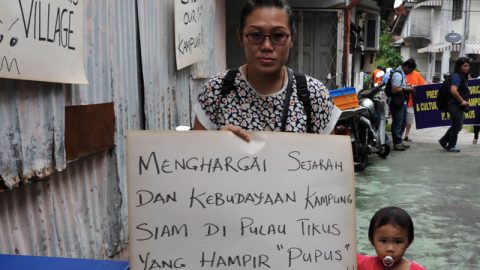 VILLAGE
OUR
KAMPUNG
MENGHARGAI SEJARAH
DAN KEBUDAYAAN KAMPUNG
SIAM DI PULAU TIKUS
YANG HAMPIR "PUPUS"
& CULTUR
TIKUS